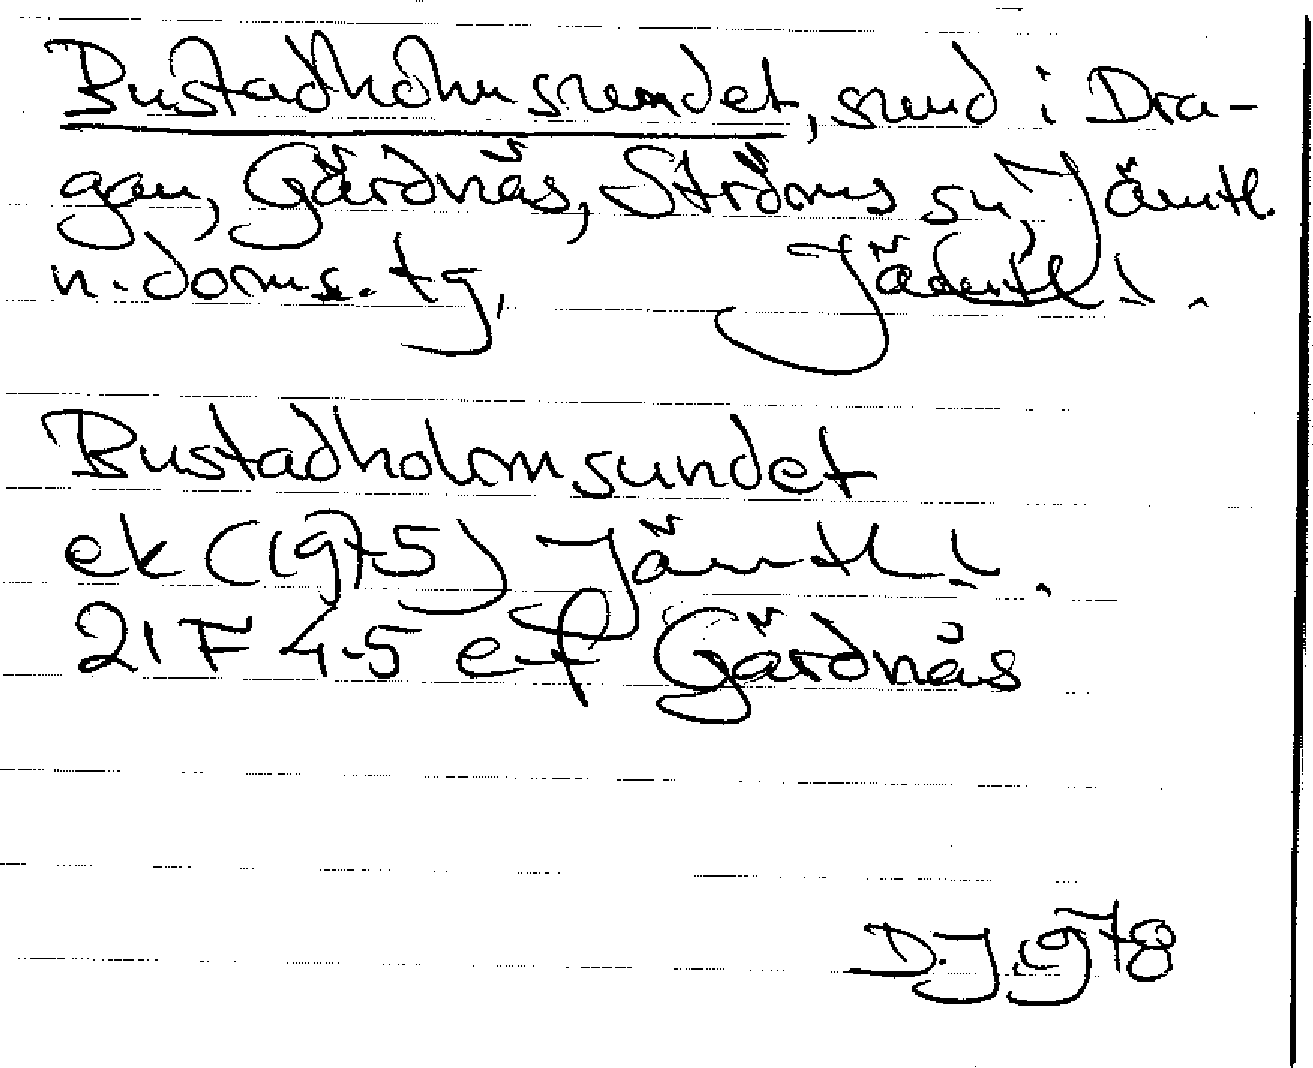 Bustadholmsundet, sund i Dra-
gan, Gärdnäs, Ströms sn, Jämtl.
n. doms. tg. Jämtl!.
Bustadholmsundet
ek (1975) Jämtl!.
21F 4-5 e-f Gärdnäs
D.J. 978